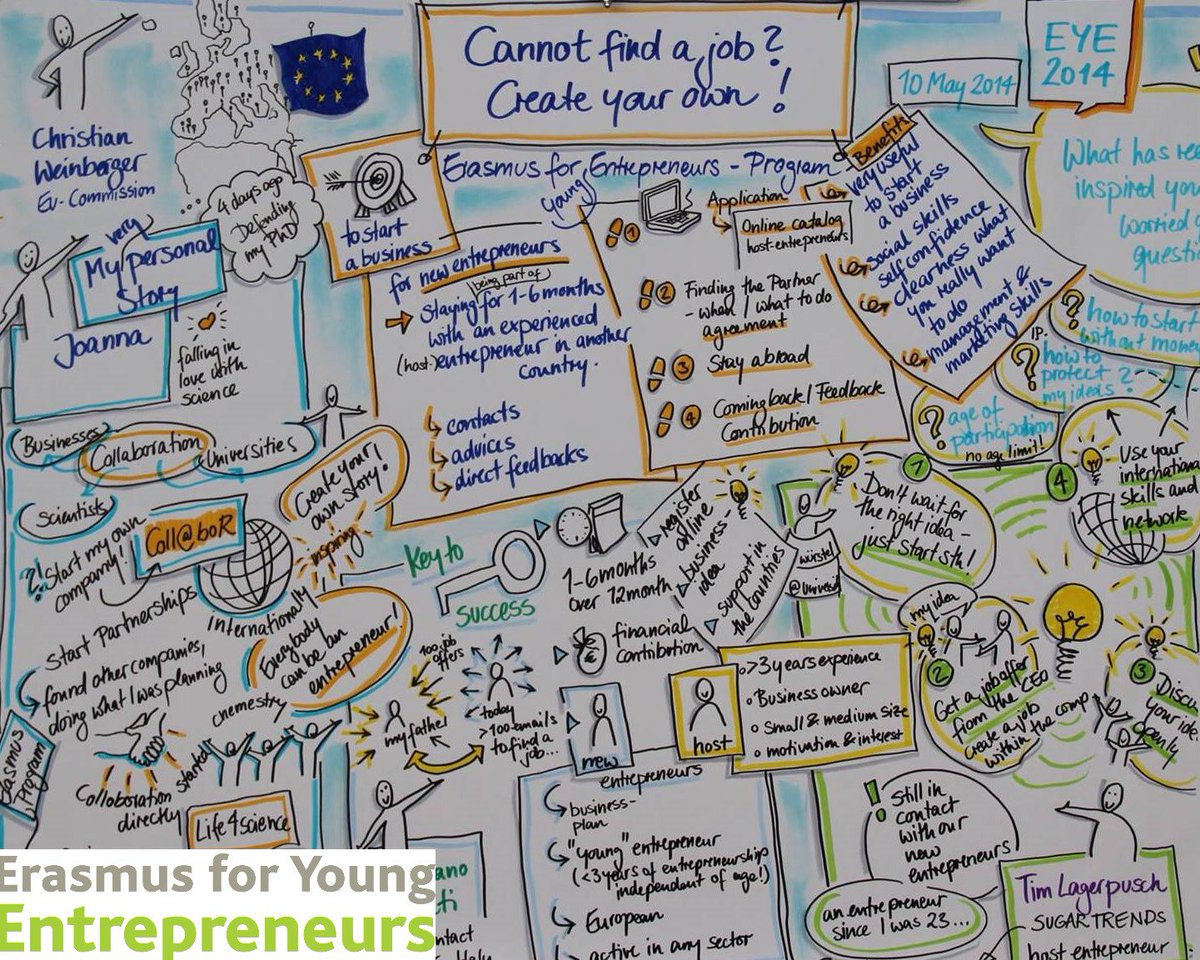 Cannot find a job?
Create your own!
10 May 2014
EYE
2014
Christian
Weinberger
EU-Commission
4 days ago
Defending
my PhD
My very personal
Story
Joanna
falling in
love with
science
to start
a business
Erasmus for young Entrepreneurs - Program
for new entrepreneurs
being part of
Staying for 1-6 months
with an experienced
(host-)entrepreneur in another
country.
contacts
advices
direct feedbacks
Application
1
Online catalog
host-entrepreneurs
2 Finding the Partner
- when / what to do
agreement
3 Stay abroad
4 Coming back / Feedback
Contribution
Benefits
very useful
to start
a business
social skills
self confidence
clearness what
you really want
to do
management &
marketing skills
What has
inspired
worried
? how to start
without money
IP.
? how to
protect
my ideas?
? age of
participation
no age limit!
Businesses
Collaboration
Universities
Scientists
Create your
own story!
inspiring
?! Start my own
company!
Coll@boR
Start Partnerships
Internationally
found other companies,
doing what I was planning
Everybody
can be an
entrepreneur!
chemestry
Program
Colloboration
directly
started
Life4science
Key to
success
1-6 months
over 12 month
financial
contribution
register
online
business-
idea
support in
the countries
100 job
offers
my father
today
>100 emails
to find a
job...
new
entrepreneurs
host
>3 years experience
Business owner
Small & medium size
motivation & interest
business-
plan
"young" entrepreneur
(<3 years of entrepreneurship
independent of age!)
European
active in any sector
würstel
1
Don't wait for
the right idea -
just start sth!
my idea
2
Get a job offer
from the CEO
create a job
within the comp
3
your idea
openly
4
Use your
international
skills and
network
! Still in
contact
with our
new
entrepreneurs
an entrepreneur
since I was 23...
Tim Lagerpusch
SUGARTRENDS
host entrepreneur
Erasmus for Young
Entrepreneurs